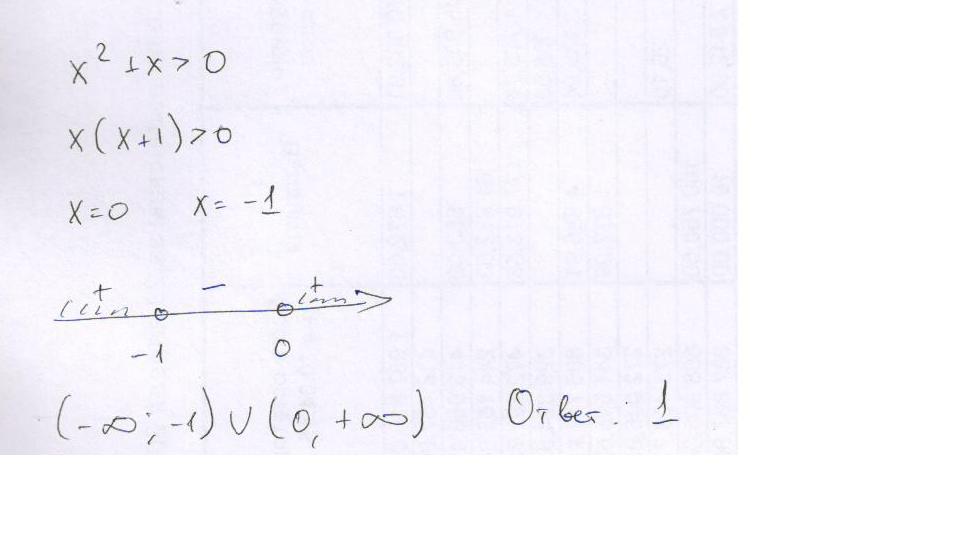 x² + x > 0
x(x+1)>0
x=0 x= -1
+ − +
-1 0
(-∞; -1) ∪ (0, +∞) Ответ: 1